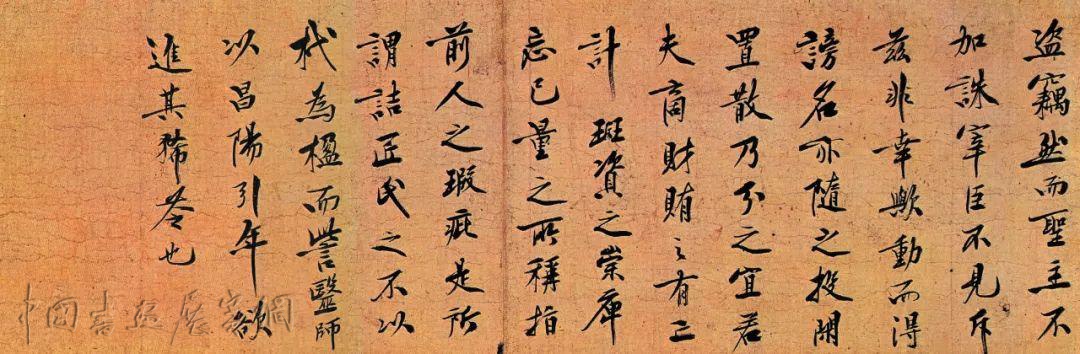 盗竊然而聖主不
加誅宰臣不見斥
兹非幸歟動而得
謗名亦隨之投閑
置散乃分之宜若
夫商財賄之有亡
計班資之崇庳
忘己量之所稱指
前人之瑕疵是所
謂詰匠氏之不以
杙為楹而訾醫師
以昌陽引年欲
進其豨苓也
中國書法展賽網